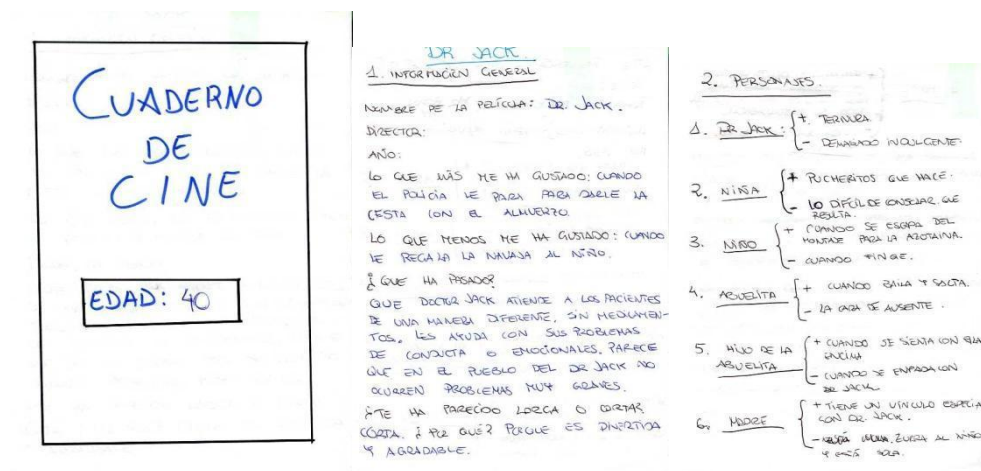 CUADERNO
DE
CINE
EDAD: 40
DR JACK.
1. INFORMACIÓN GENERAL
NOMBRE DE LA PELÍCULA: DR. JACK.
DIRECTOR:
AÑO:
LO QUE MÁS ME HA GUSTADO: CUANDO
EL POLICÍA LE PARA PARA DARLE LA
CESTA CON EL ALMUERZO.
LO QUE MENOS ME HA GUSTADO: CUANDO
LE REGALA LA NAVAJA AL NIÑO.
¿QUÉ HA PASADO?
QUE DOCTOR JACK ATIENDE A LOS PACIENTES
DE UNA MANERA DIFERENTE, SIN MEDICAMEN-
TOS. LES AYUDA CON SUS PROBLEMAS
DE CONDUCTA O EMOCIONALES. PARECE
QUE EN EL PUEBLO DEL DR JACK NO
OCURREN PROBLEMAS MUY GRAVES.
¿TE HA PARECIDO LARGA O CORTA?
CORTA. ¿POR QUÉ? PORQUE ES DIVERTIDA
Y AGRADABLE.
2. PERSONAJES.
1. DR JACK: + TERNURA.
- DEMASIADO INDULGENTE.
2. NIÑA + PUCHERITOS QUE HACE.
- LO DIFÍCIL DE CONSOLAR QUE
RESULTA.
3. NIÑO + CUANDO SE ESCAPA DEL
MONTAJE PARA LA AZOTAINA.
- CUANDO FINGE.
4. ABUELITA + CUANDO BAILA Y SALTA.
- LA CARA DE AUSENTE.
5. HIJO DE LA
ABUELITA + CUANDO SE SIENTA CON ELLA
ENCIMA
- CUANDO SE ENFADA CON
DR JACK
6. MADRE + TIENE UN VÍNCULO ESPECIA
CON DR. JACK.
- ZURRA AL NIÑO